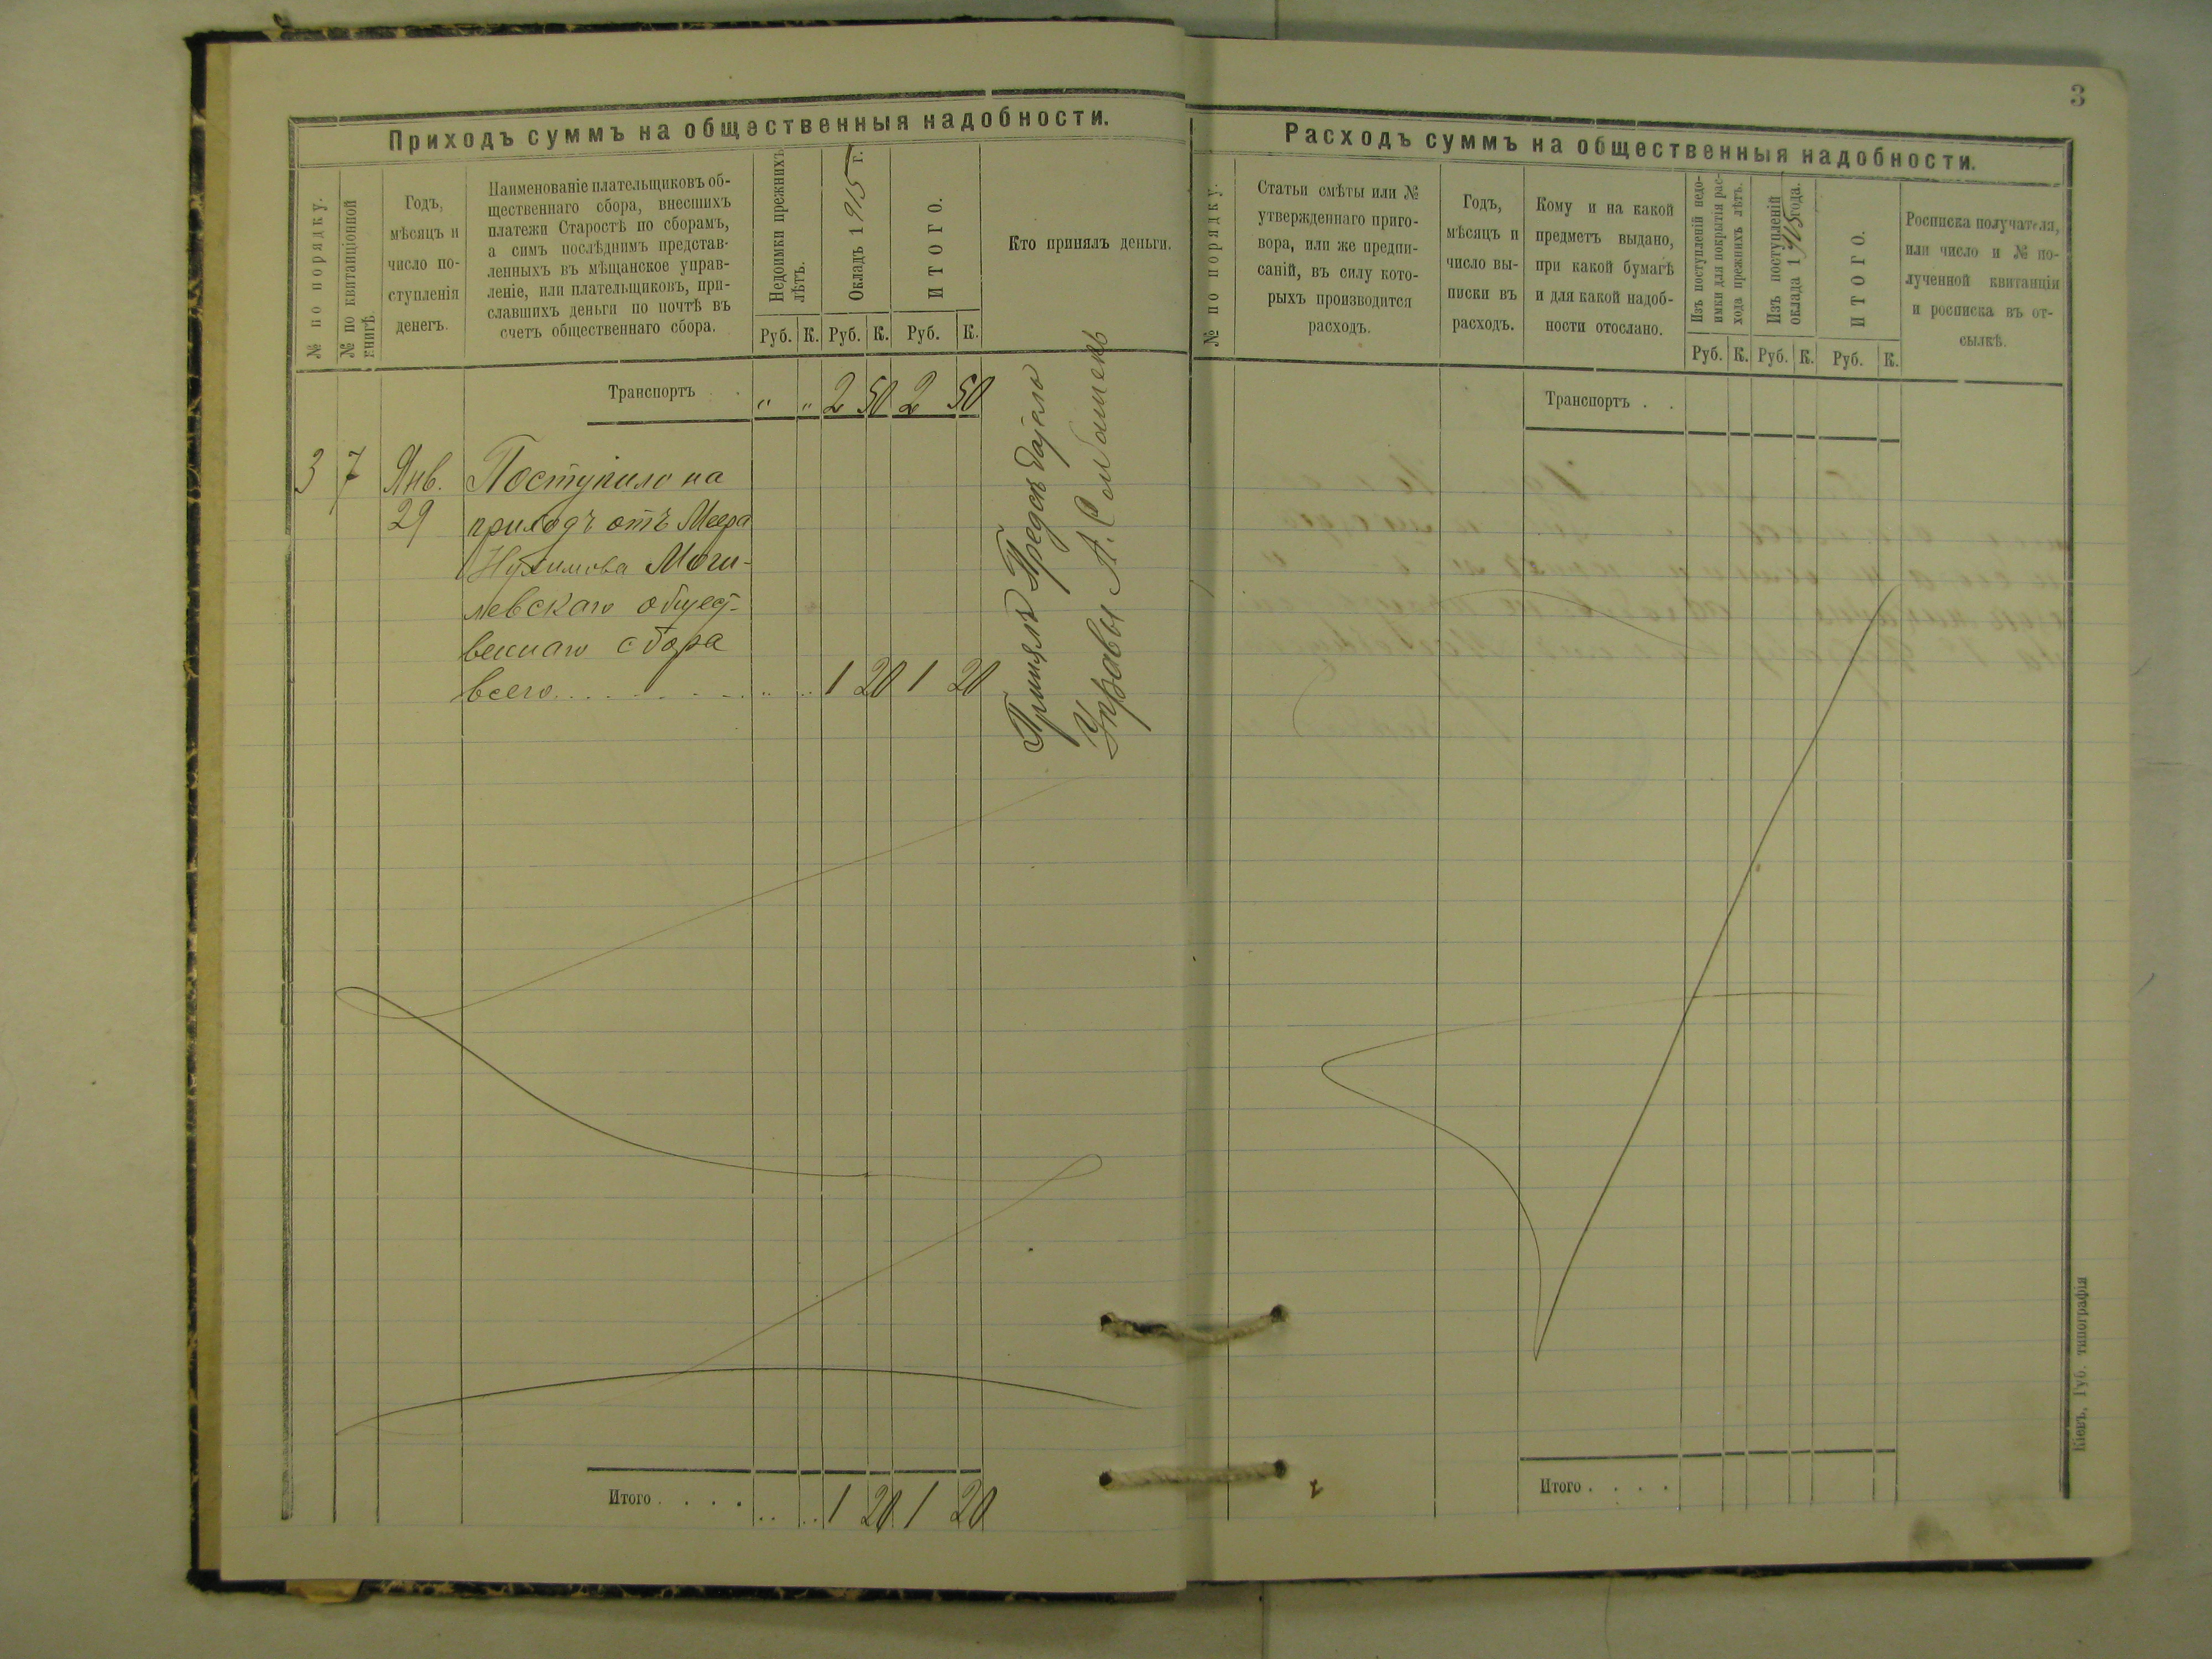 Приходъ суммъ на общественныя надобности.
№ по порядку.
№ по квитанціонной
книгѣ.
Годъ,
мѣсяцъ и
число по-
ступленія
денегъ.
Наименованіе плательщиковъ об-
щественнаго сбора, внесшихъ
платежи Старостѣ по сборамъ,
а симъ послѣднимъ представ-
ленныхъ въ мѣщанское управ-
леніе, или плательщиковъ, при-
славшихъ деньги по почтѣ въ
счетъ общественнаго сбора.
Недоимки прежнихъ
лѣтъ.
Окладъ 1915 г.
ИТОГО.
Кто принялъ деньги.
Руб. К. Руб. К. Руб. К.
Транспортъ . „ „ 2 50 2 50
3 7 Янв. Поступило на
29 приходъ отъ Меера
Нухимова Моги-
левскаго общест-
веннаго сбора
всего . . . . . . . „ „ 1 20 1 20
Принялъ Предсѣдатель
Управы А.
Итого . . . . „ „ 1 20 1 20
3
Расходъ суммъ на общественныя надобности.
№ по порядку.
Статьи смѣты или №
утвержденнаго приго-
вора, или же предпи-
саній, въ силу кото-
рыхъ производится
расходъ.
Годъ,
мѣсяцъ и
число вы-
писки въ
расходъ.
Кому и на какой
предметъ выдано,
при какой бумагѣ
и для какой надоб-
ности отослано.
Изъ поступленій недо-
имки для покрытія рас-
хода прежнихъ лѣтъ.
Изъ поступленій
оклада 1915 года.
ИТОГО.
Росписка получателя,
или число и № по-
лученной квитанціи
и росписка въ от-
сылкѣ.
Руб. К. Руб. К. Руб. К.
Транспортъ . .
Итого . . . .
Кіевъ, Губ. типографія